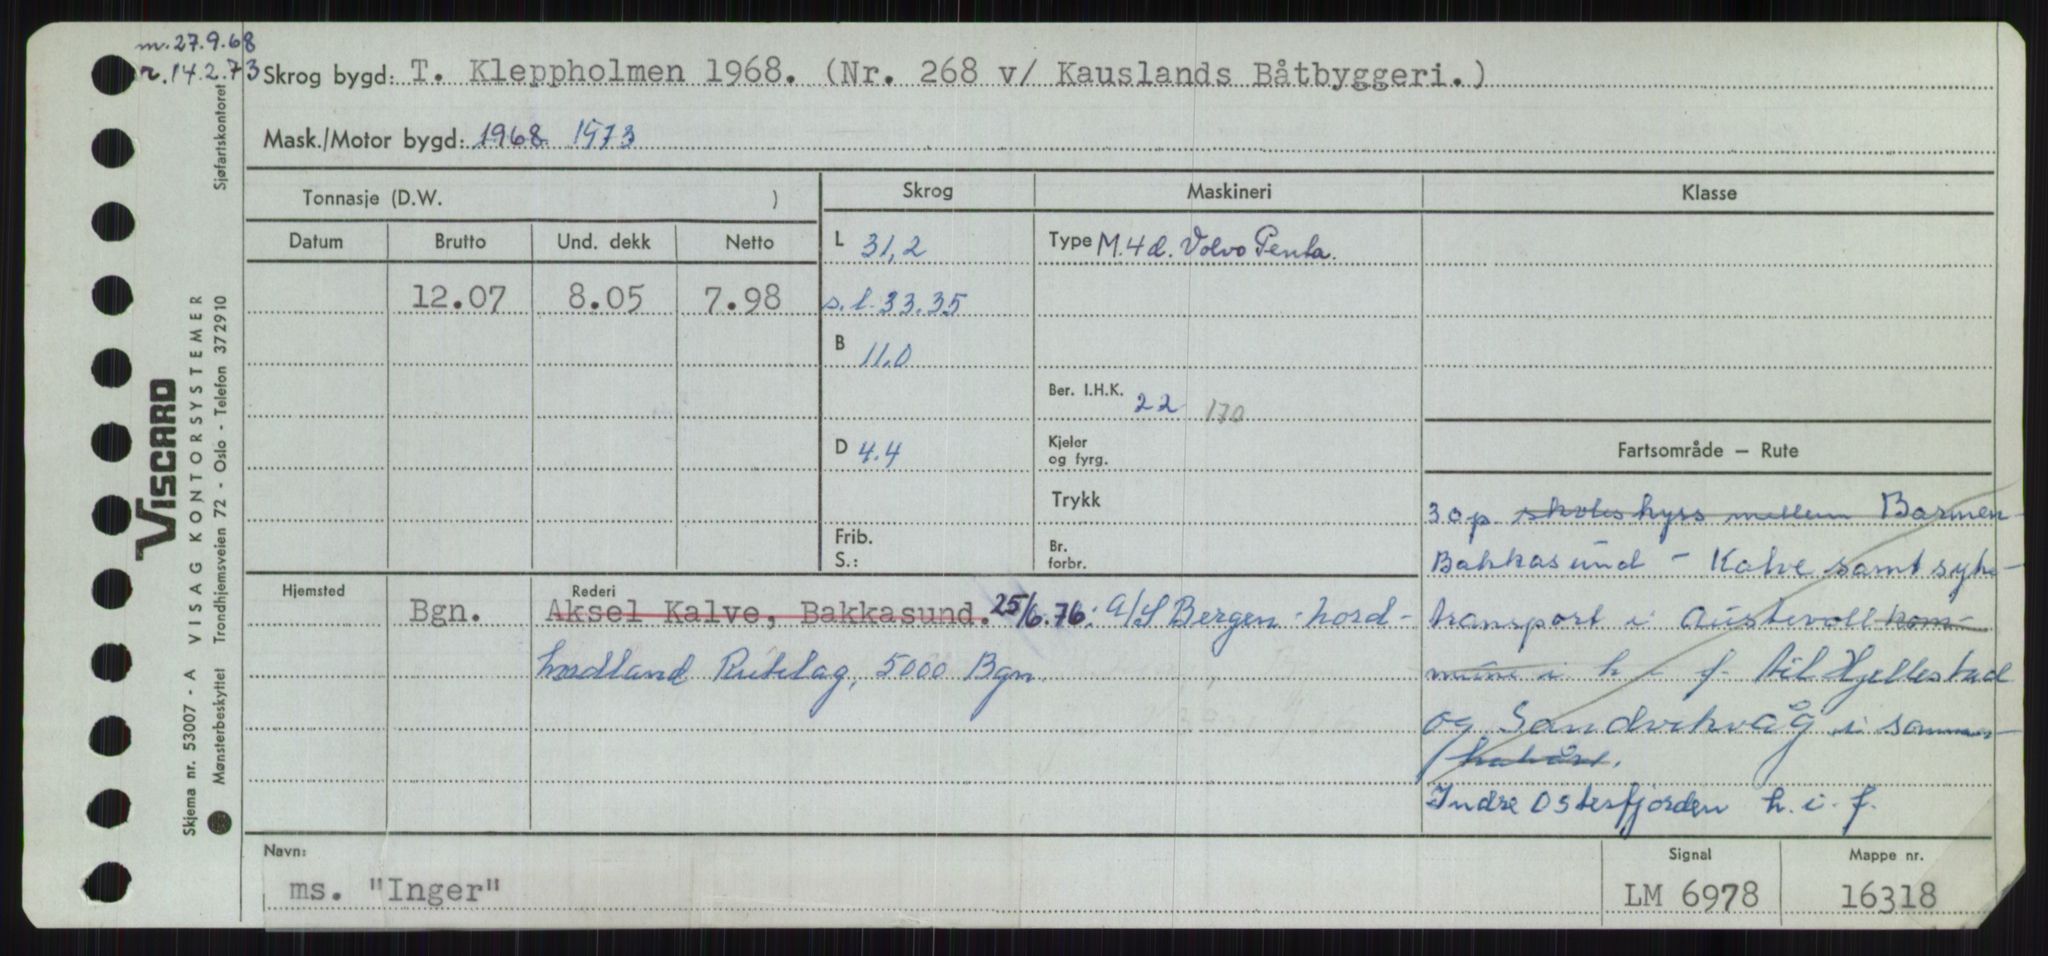 m. 27.9.68
r. 14.2.73
Skrog bygd: T. Kleppholmen 1968. (Nr. 268 v/ Kauslands Båtbyggeri.)
Mask./Motor bygd: 1968 1973
Sjøfartskontoret
Tonnasje (D.W. )
Skrog
Maskineri
Klasse
Datum
Brutto
Und. dekk
Netto
12.07
8.05
7.98
L 31,2
s.l. 33.35
B 11.0
D 4.4
Frib.
S.:
Type M.4d. Volvo Penta.
Ber. I.H.K. 22 170
Kjeler
og fyrg.
Trykk
Br.
forbr.
Fartsområde — Rute
30p skoleskyss mellem Barmen
Bakkasund - Kalve samt syke-
transport i Austevoll kom-
mune i h i f til Hjellestad
og Sandvikvåg i sommer-
halvåret.
Indre Osterfjorden h.i.f.
Hjemsted
Bgn.
Rederi
Aksel Kalve, Bakkasund. 25/6.76: A/S Bergen-Nord-
hordland Rutelag, 5000 Bgn.
Navn:
ms. "Inger"
Signal
LM 6978
Mappe nr.
16318
VISCARD
VISAG KONTORSYSTEMER
Trondhjemsveien 72 - Oslo - Telefon 372910
Skjema nr. 53007 - A
Mønsterbeskyttet